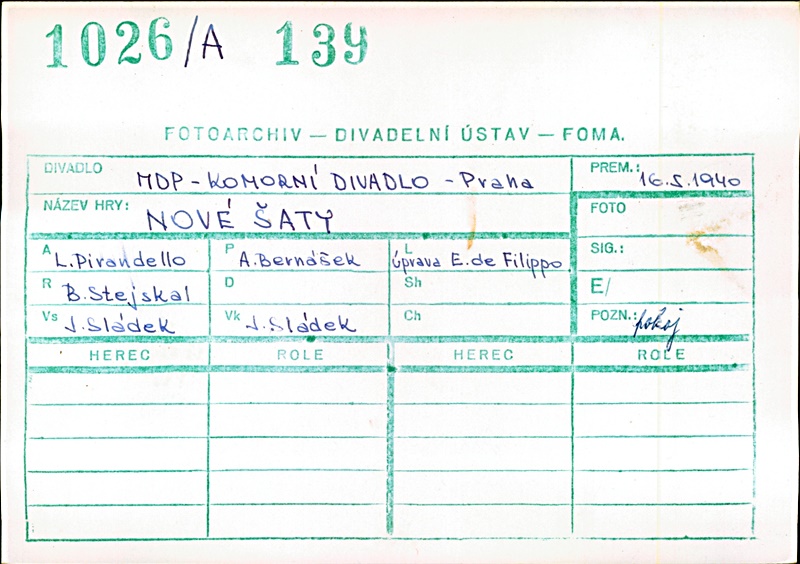 1026/A 139
FOTOARCHIV — DIVADELNÍ ÚSTAV — FOMA.
DIVADLO MDP - KOMORNÍ DIVADLO - Praha PREM.: 16.5.1940
NÁZEV HRY: NOVÉ ŠATY FOTO
A L. Pirandello P A. Bernášek L úprava E. de Filippo SIG.:
R B. Stejskal D Sh E/
Vs J. Sládek Vk J. Sládek Ch POZN.: pokoj
HEREC ROLE HEREC ROLE